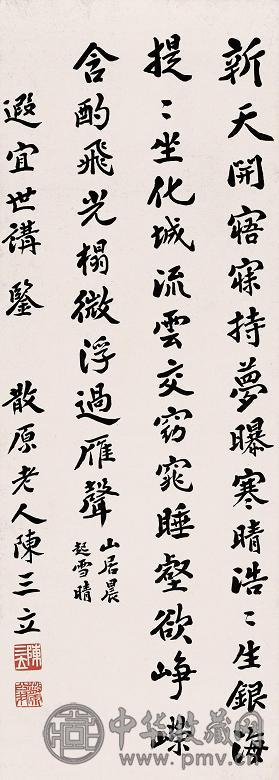 新天開寤寐持夢曝寒晴浩〻生銀海
提〻坐化城流雲交窈窕睡壑欲崢嶸
含酌飛光榻微浮過雁聲
山居晨
起雪晴
遐宜世講鑒 散原老人陳三立
中华收藏网
www.pmv.cn